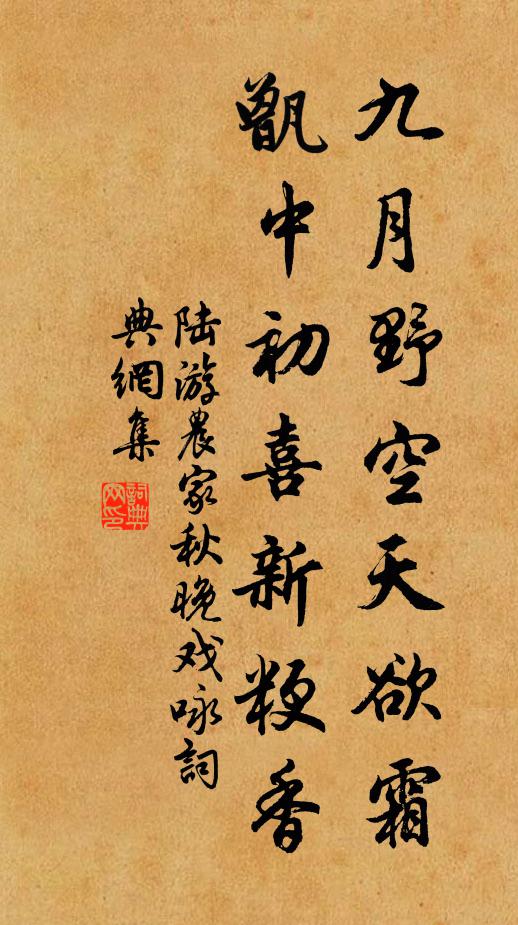 九月野空天欲霜
甑中初喜新粳香
陆游農家秋晚戏咏詞
典網集
詞典
网印